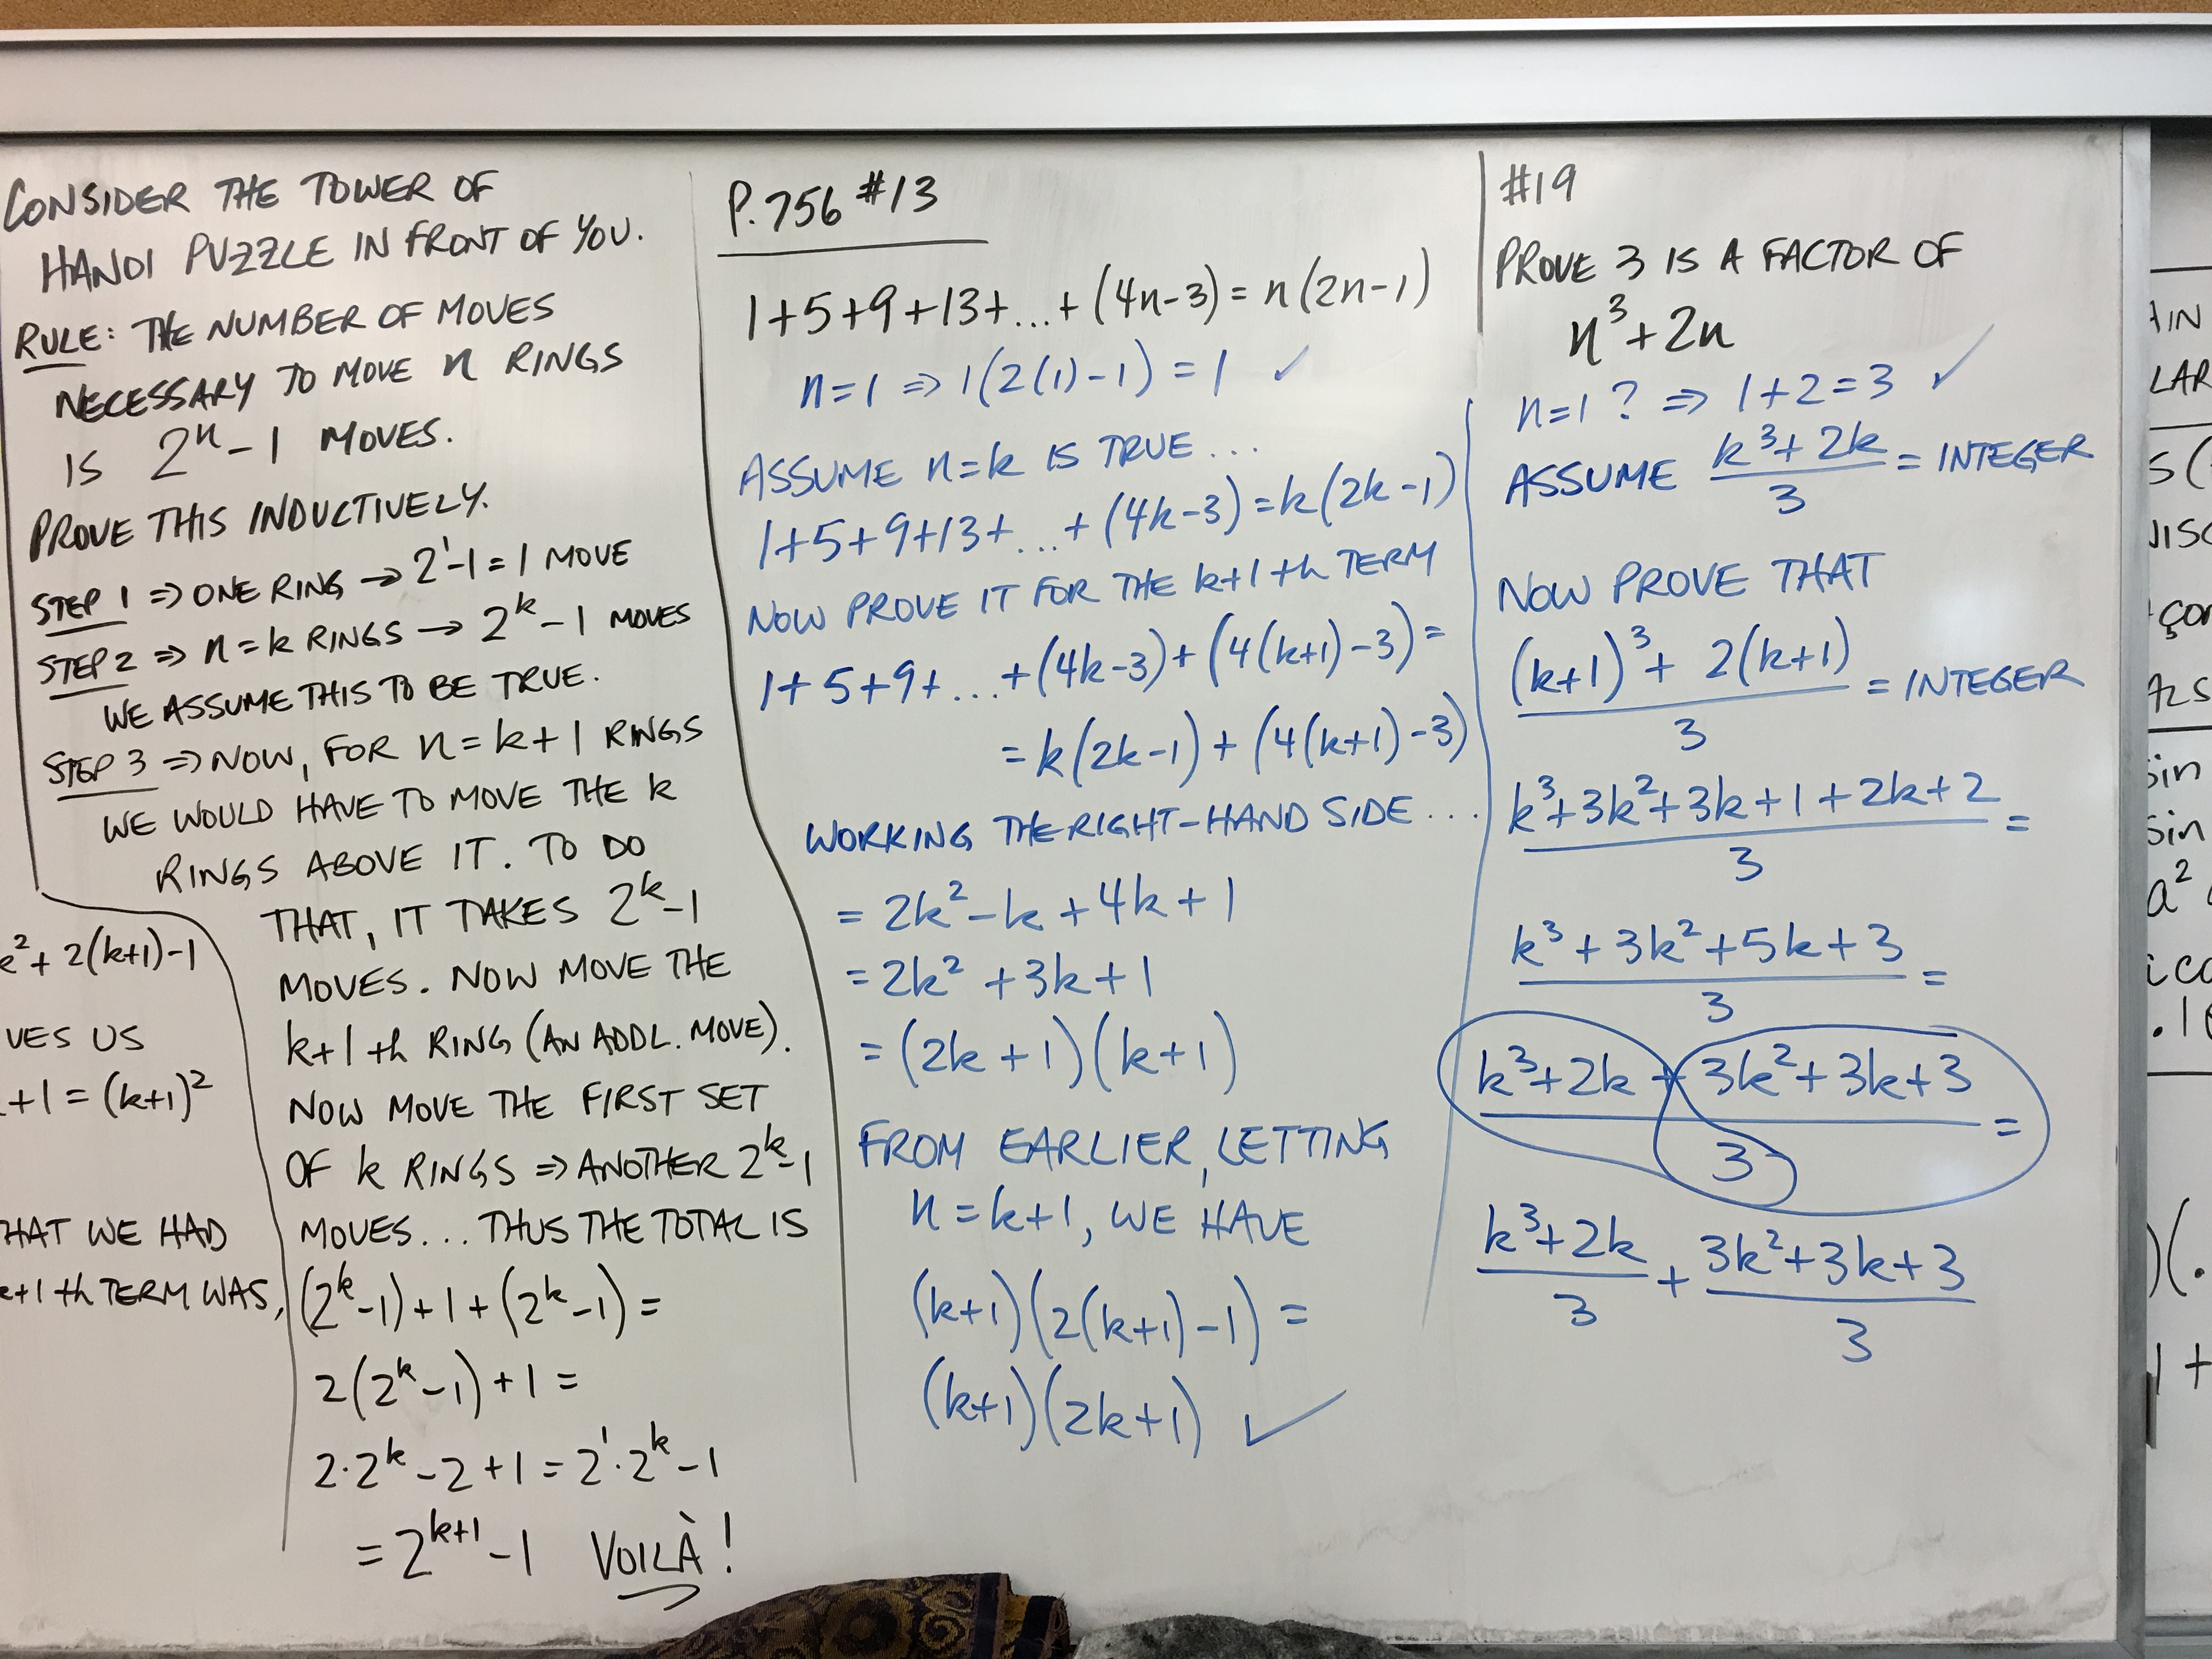 CONSIDER THE TOWER OF
HANOI PUZZLE IN FRONT OF YOU.
RULE: THE NUMBER OF MOVES
NECESSARY TO MOVE n RINGS
IS 2ⁿ-1 MOVES.
PROVE THIS INDUCTIVELY.
STEP 1 ⇒ ONE RING → 2¹-1 = 1 MOVE
STEP 2 ⇒ n = k RINGS → 2ᵏ-1 MOVES
WE ASSUME THIS TO BE TRUE.
STEP 3 ⇒ NOW, FOR n = k+1 RINGS
WE WOULD HAVE TO MOVE THE k
RINGS ABOVE IT. TO DO
THAT, IT TAKES 2ᵏ-1
MOVES. NOW MOVE THE
k+1th RING (AN ADDL. MOVE).
NOW MOVE THE FIRST SET
OF k RINGS ⇒ ANOTHER 2ᵏ-1
MOVES... THUS THE TOTAL IS
(2ᵏ-1) + 1 + (2ᵏ-1) =
2(2ᵏ-1) + 1 =
2·2ᵏ - 2 + 1 = 2¹·2ᵏ - 1
= 2ᵏ⁺¹ - 1 VOILÀ!
k² + 2(k+1)-1
VES US
+1 = (k+1)²
HAT WE HAD
k+1th TERM WAS,
P. 756 #13
1+5+9+13+...+(4n-3) = n(2n-1)
n=1 ⇒ 1(2(1)-1) = 1 ✓
ASSUME n=k IS TRUE...
1+5+9+13+...+(4k-3) = k(2k-1)
NOW PROVE IT FOR THE k+1th TERM
1+5+9+...+(4k-3)+(4(k+1)-3) =
= k(2k-1) + (4(k+1)-3)
WORKING THE RIGHT-HAND SIDE...
= 2k² - k + 4k + 1
= 2k² + 3k + 1
= (2k+1)(k+1)
FROM EARLIER, LETTING
n = k+1, WE HAVE
(k+1)(2(k+1)-1) =
(k+1)(2k+1) ✓
#19
PROVE 3 IS A FACTOR OF
n³+2n
n=1? ⇒ 1+2=3 ✓
ASSUME (k³+2k)/3 = INTEGER
NOW PROVE THAT
((k+1)³ + 2(k+1))/3 = INTEGER
(k³+3k²+3k+1+2k+2)/3 =
(k³+3k²+5k+3)/3 =
(k³+2k + 3k²+3k+3)/3 =
(k³+2k)/3 + (3k²+3k+3)/3
AIN
LAR
S(
DISC
ços
sin
sin
a²
1+